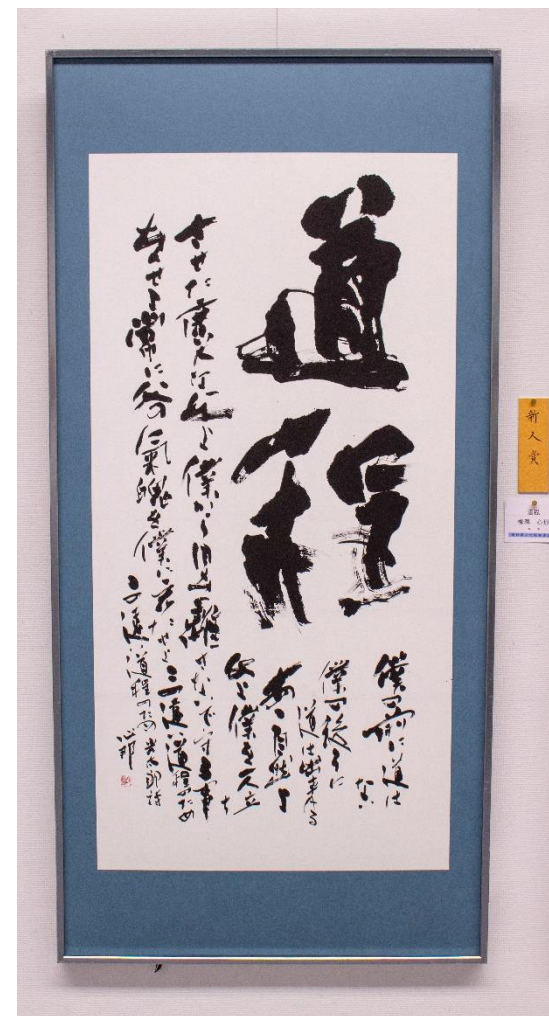 道程
僕の前に道は
ない
僕の後ろに
道は出来る
あゝ自然よ
父よ僕を一人立
ち
させた廣大な父よ僕から目を離さないで守る事
をせよ常に父の氣魄を僕に充たせよ
この遠い道程のため
この遠い道程のため 光太郎詩
心邦
新人賞